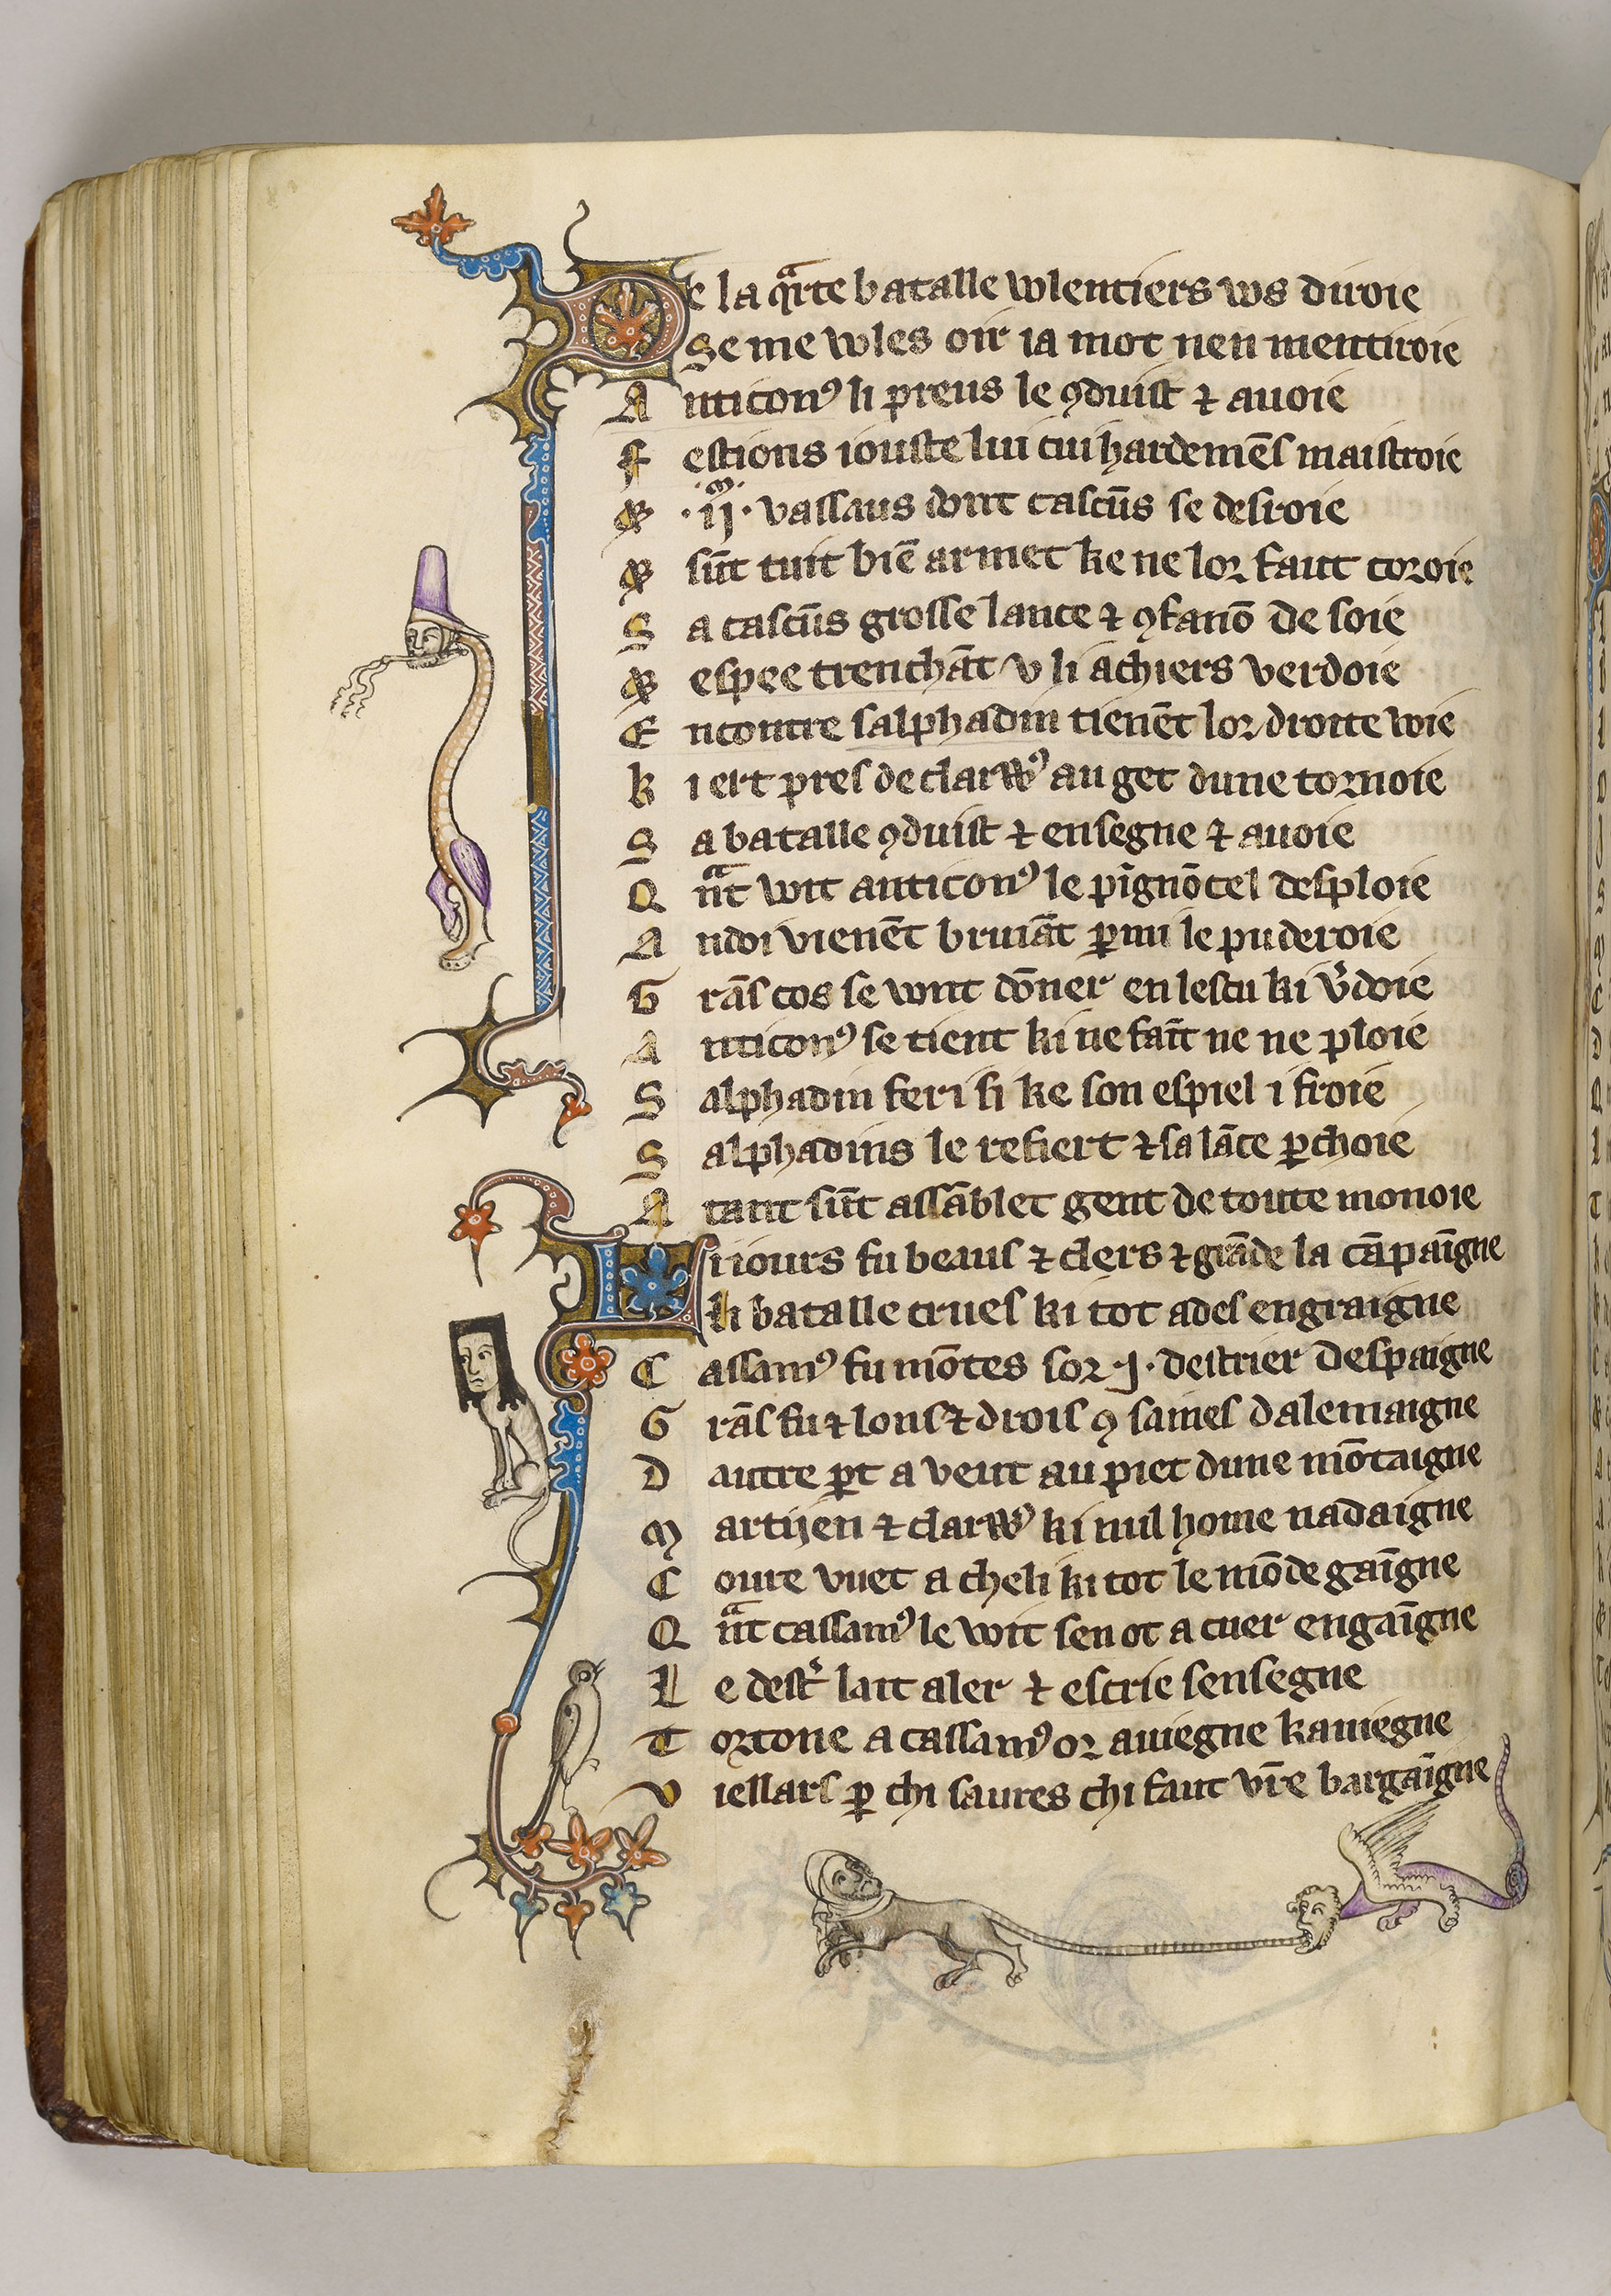 De la q̃rte batalle wlentiers ws diroie
Se me wles oir ia mot nen mentiroie
Anticonꝰ li preus le ꝯduist ⁊ auoie
Festions iouste lui cui hardemēs maistroie
⁊ .ijͫ. vassaus dont cascūs se desroie
⁊ sūt tuit biē armet ke ne loꝛ faut coꝛoie
Sa cascūs grosse lance ⁊ ꝯfanō de soie
⁊ espee trenchāt v li achiers verdoie
Encontre salphadin tienēt loꝛ droite woie
ki ert pres de clarwꝰ au get dune toꝛnoie
Sa batalle ꝯduist ⁊ ensegne ⁊ auoie
Qᵃnt wit anticonꝰ le pignōcel desploie
Andoi vienēt bruiāt ꝑmi le puderoie
Grās cos se wnt dōner en lescu ki v̾doie
Anticonꝰ se tient ki ne faīt ne ne ploie
Salphadin feri si ke son espiel i froie
Salphadins le refiert ⁊ sa lāce ꝑchoie
Atant sūt assāblet gent de toute monoie
Li iours fu beaus ⁊ clers ⁊ grāde la cāpaīgne
⁊ li batalle crues ki tot ades engraigne
Cassamꝰ fu mōtes soꝛ .j. destrier despaigne
Grās fu ⁊ lons ⁊ drois ꝯ saines dalemaigne
Dautre ꝑt a veut au piet dune mōtaigne
Martijen ⁊ clarwꝰ ki nul home nadaigne
Coure vuet a cheli ki tot le mōde gaīgne
Qᵃnt cassamꝰ le woit sen ot a cuer engaīgne
Le dest̾ lait aler ⁊ escrie sensegne
Toꝛtone a cassamꝰ oꝛ auiegne kauiegne
Viellars ꝑ chi saures chi faut vr̄e bargaīgne